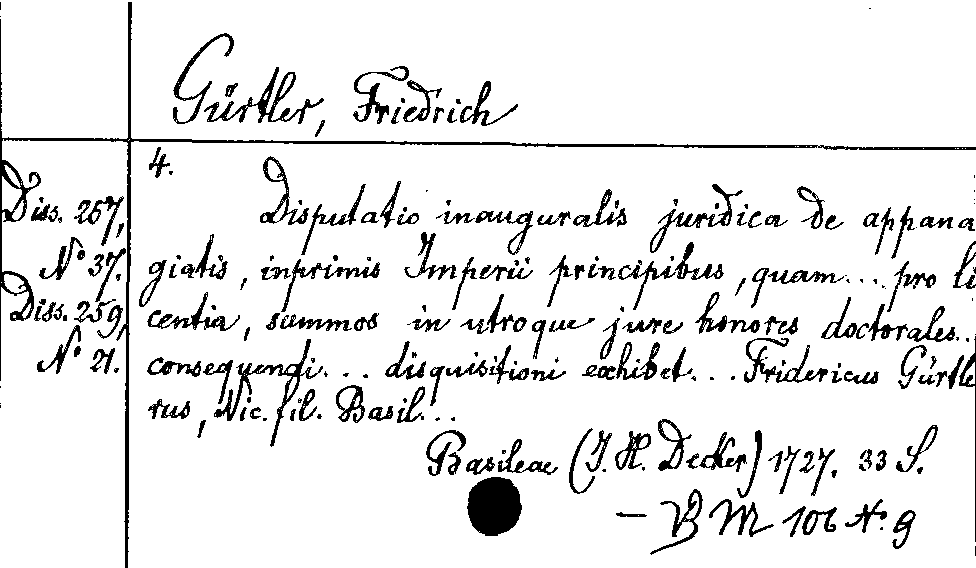 Gürtler, Friedrich
4.
Diss. 257,
No 37.
Diss. 259,
No 21.
Disputatio inauguralis juridica de appana
giatis, inprimis Imperii principibus, quam... pro li
centia, summos in utroque jure honores doctorales..
consequendi... disquisitioni exhibet... Fridericus Gürtle
rus, Nic. fil. Basil...
Basileae (J. H. Decker) 1727. 33 S.
— BM 106 No. 9